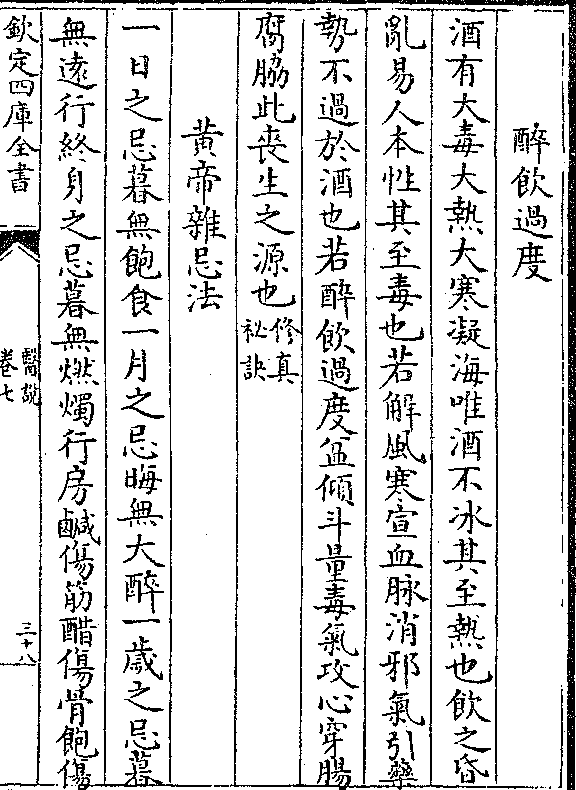 醉飲過度
酒有大毒大熱大寒凝海唯酒不冰其至熱也飲之昏
亂易人本性其至毒也若解風寒宣血脉消邪氣引藥
勢不過於酒也若醉飲過度盆傾斗量毒氣攻心穿腸
腐脇此喪生之源也修真祕訣
黄帝雜忌法
一日之忌暮無飽食一月之忌晦無大醉一歲之忌暮
無遠行終身之忌暮無燃燭行房鹹傷筋醋傷骨飽傷
欽定四庫全書
醫說
卷七
三十八